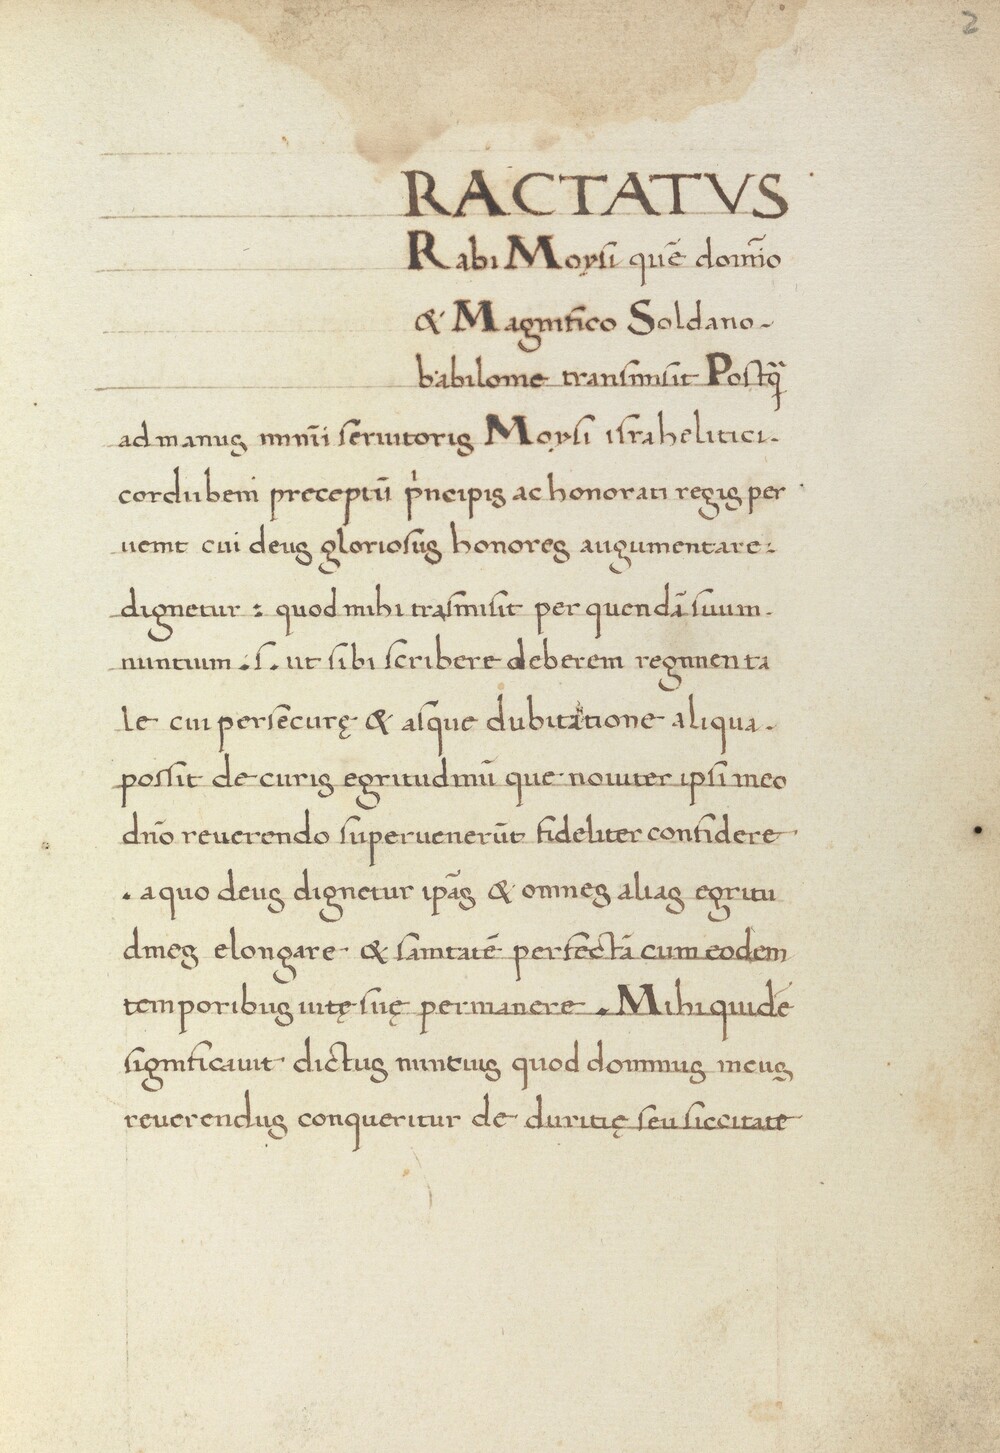 2
RACTATVS
Rabi Moysi quē domīo
& Magnifico Soldano
babilonie transmisit Postq̄
ad manus minimi seruitoris Moysi israhelitici.
cordubeni preceptū pˈncipis ac honorati regis per
uenit cui deus gloriosus honores augumentare:
dignetur : quod mihi trasmisit per quendā suum.
nuntium .s. ut sibi scribere deberem regimenta
le cui persēcurę & asque dubitatione aliqua.
possit de curis egritudinū que nouiter ipsi meo
dn̄o reuerendo superuenerūt fideliter confidere
. a quo deus dignetur ipās & omnes alias egritu
dines elongare & sanitatē perfectā cum eodem
temporibus uitę suę permanere . Mihi quidē
significauit dictus nuncius quod dominus meus
reuerendus conqueritur de duritię seu siccitate